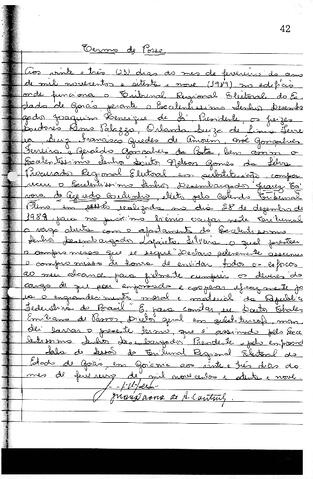 42
Termo de Posse
Aos vinte e três (23) dias do mês de fevereiro do ano
de mil novecentos e oitenta e nove (1989) no edifício
onde funciona o Tribunal Regional Eleitoral do Es
tado de Goiás perante o Excelentíssimo Senhor Desemb
gador Joaquim Henrique de Sá, Presidente, os juízes
Doutores Remo Palazzo, Orlanda Luiza de Lima Ferre
ira, Luiz Francisco Guedes de Amorim, José Gonçalves
Ferreira, e Geraldo Gonçalves da Costa, bem como o
Excelentíssimo Senhor Doutor Nelson Gomes da Silva
Procurador Regional Eleitoral em substituição compa
receu o Excelentíssimo Senhor Desembargador
eleito pelo Colendo Tribunal
Pleno em sessão realizada no dia 28 de dezembro de
1988 para no próximo biênio ocupar neste Tribunal
a vaga aberta com o afastamento do Excelentíssimo
Senhor Desembargador Lafaiete Silveira, o qual prestou
o compromisso que se segue: Declaro solenemente assumir
o compromisso de honra de envidar todos os esforços
ao meu alcance para fielmente cumprir os deveres do
cargo de que sou empossado e cooperar eficazmente pa
ra o engrandecimento moral e material da República
Federativa do Brasil. E, para constar, eu
Diretor Geral em substituição, man
dei lavrar o presente termo que é assinado pelo Exce
lentíssimo Senhor Desembargador Presidente e pelo empossado
Sala de Sessões do Tribunal Regional Eleitoral do
Estado de Goiás, em Goiânia aos vinte e três dias do
mês de fevereiro de mil novecentos e oitenta e nove